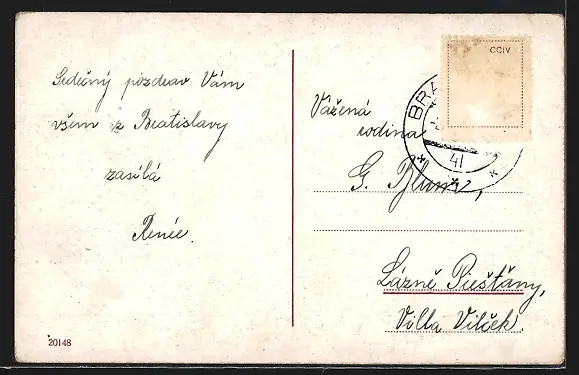 Srdečný pozdrav Vám
všem z Bratislavy
zasílá
Renée.
20148
CCIV
BRA
41
Vážená
rodina
G. Blum,
Lázně Piešťany,
Villa Vlček.